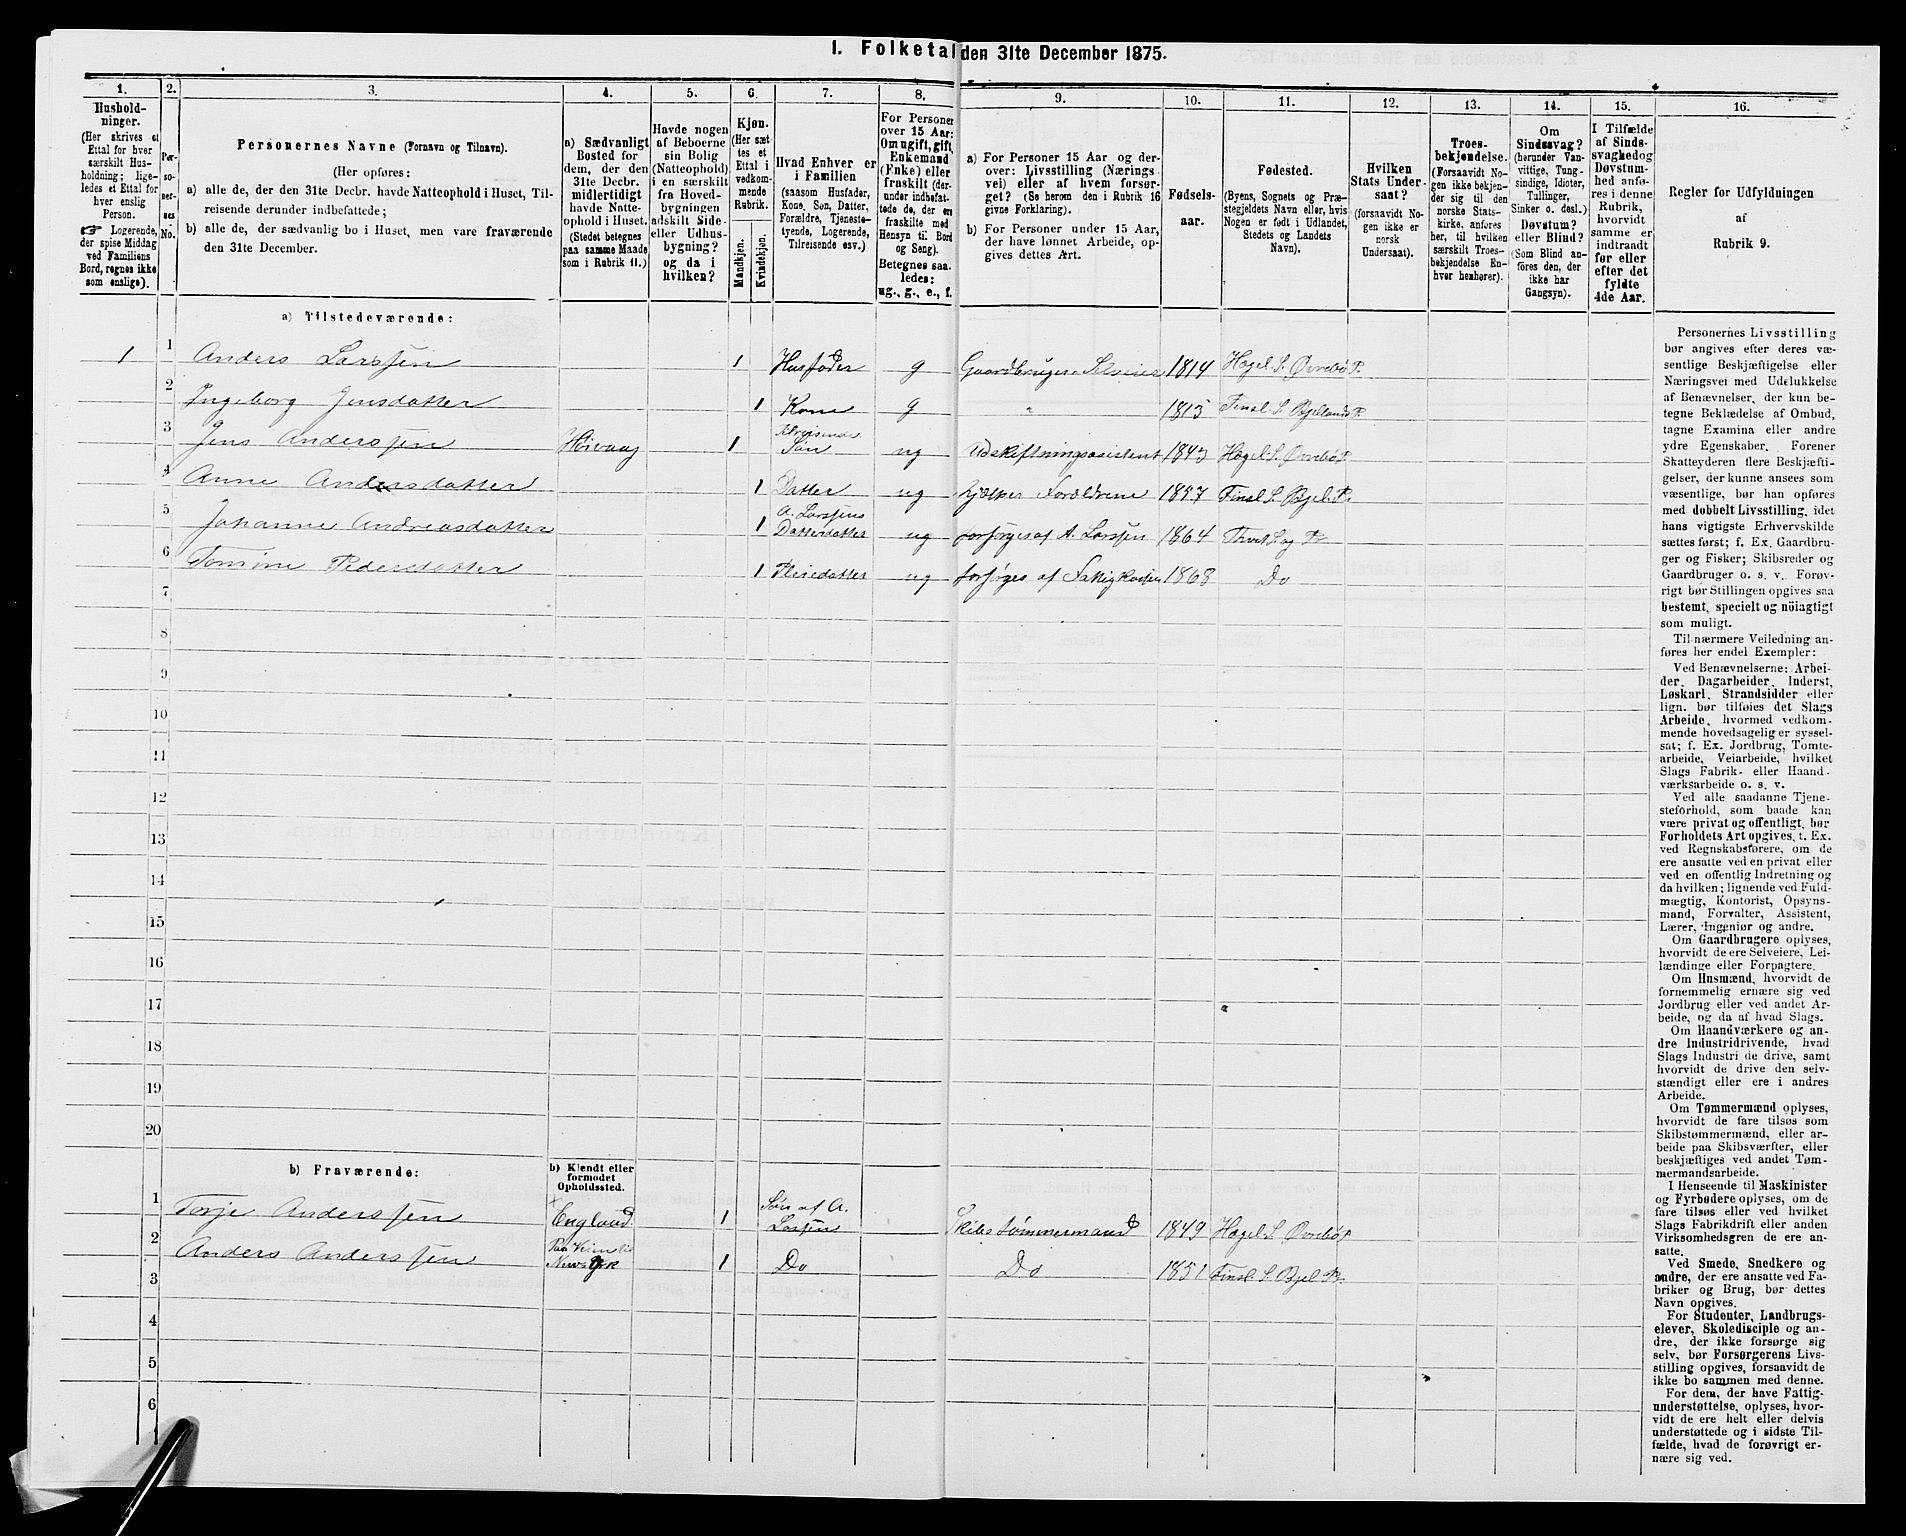 I. Folketal den 31te December 1875.
1. 2. 3. 4. 5. 6. 7. 8. 9. 10. 11. 12. 13. 14. 15. 16.
Hushold-
ninger.
(Her skrives et
Ettal for hver
særskilt Hus-
holdning; lige-
ledes et Ettal for
hver enslig
Person.
☞ Logerende,
der spise Middag
ved Familiens
Bord, regnes ikke
som enslige).
Per-
so-
ner-
nes
No.
Personernes Navne (Fornavn og Tilnavn).
(Her opføres:
a) alle de, der den 31te Decbr. havde Natteophold i Huset, Til-
reisende derunder indbefattede;
b) alle de, der sædvanlig bo i Huset, men vare fraværende
den 31te December.
a) Sædvanligt
Bosted for
dem, der den
31te Decbr.
midlertidigt
havde Natte-
ophold i Huset.
(Stedet betegnes
paa samme Maade
som i Rubrik 11.)
Havde nogen
af Beboerne
sin Bolig
(Natteophold)
i en særskilt
fra Hoved-
bygningen
adskilt Side-
eller Udhus-
bygning?
og da i
hvilken?
Kjøn.
(Her sæt-
tes et
Ettal i
vedkom-
mende
Rubrik.
Mandkjøn.
Kvindekjøn.
Hvad Enhver er
i Familien
(saasom Husfader,
Kone, Søn, Datter,
Forældre, Tjeneste-
tyende, Logerende,
Tilreisende osv.)
For Personer
over 15 Aar:
Om ugift, gift,
Enkemand
(Enke) eller
fraskilt (der-
under indbefat-
tede de, der ere
fraskilte med
Hensyn til Bord
og Seng).
Betegnes saa-
ledes:
ug., g., e., f.
a) For Personer 15 Aar og der-
over: Livsstilling (Nærings-
vei) eller af hvem forsør-
get? (Se herom den i Rubrik 16
givne Forklaring).
b) For Personer under 15 Aar,
der have lønnet Arbeide, op-
gives dettes Art.
Fødsels-
aar.
Fødested.
(Byens, Sognets og Præ-
stegjeldets Navn eller, hvis
Nogen er født i Udlandet,
Stedets og Landets
Navn).
Hvilken
Stats Under-
saat?
(forsaavidt No-
gen ikke er
norsk
Undersaat).
Troes-
bekjendelse.
(Forsaavidt No-
gen ikke bekjen-
der sig til den
norske Stats-
kirke, anføres
her, til hvilken
særskilt Troes-
bekjendelse En-
hver henhører).
Om
Sindssvag?
(herunder Van-
vittige, Tung-
sindige, Idioter,
Tullinger,
Sinker o. desl.)
Døvstum?
eller Blind?
(Som Blind an-
føres den, der
ikke har
Gangsyn).
I Tilfælde
af Sinds-
svaghed og
Døvstum-
hed anfø-
res i denne
Rubrik,
hvorvidt
samme er
indtraadt
før eller
efter det
fyldte
4de Aar.
Regler for Udfyldningen
af
Rubrik 9.
a) Tilstedeværende:
1 1 Anders Larssen 1 Husfader g Gaardbruger Selveier 1814 Hægel. S. Øvrebø P.
2 Ingeborg Jensdatter 1 Kone g " 1815 Finsl. S. Bjellands P.
3 Jens Anderssen Høivaag 1 Søn ug Udskiftningsassistent 1843 Hægel. S. Øvrebø P.
4 Anne Andersdatter 1 Datter ug hjælper Forældrene 1857 Finsl. S. Bjel. P.
5 Johanne Andreasdatter 1 A. Larssens
Datterdatter ug forsørges af A. Larssen 1864 Tveit S. og P.
6 Tomine Pedersdatter 1 Pleiedatter ug forsørges af Fattigkassen 1868 Do
7
8
9
10
11
12
13
14
15
16
17
18
19
20
b) Fraværende:
b) Kjendt eller
formodet
Opholdssted.
1 Torje Anderssen England 1 Søn af A.
Larssen Skibstømmermand 1849 Hægel. S. Øvrebø P.
2 Anders Anderssen 1 Do Do 1851 Finsl. S. Bjel. P.
3
4
5
6
Personernes Livsstilling
bør angives efter deres væ-
sentlige Beskjæftigelse eller
Næringsvei med Udelukkelse
af Benævnelser, der kun be-
tegne Beklædelse af Ombud,
tagne Examina eller andre
ydre Egenskaber. Forener
Skatteyderen flere Beskjæfti-
gelser, der kunne ansees som
væsentlige, bør han opføres
med dobbelt Livsstilling, idet
hans vigtigste Erhvervskilde
sættes først; f. Ex. Gaardbru-
ger og Fisker; Skibsreder og
Gaardbruger o. s. v. Forøv-
rigt bør Stillingen opgives saa
bestemt, specielt og nöiagtigt
som muligt.
Til nærmere Veiledning an-
føres her endel Exempler:
Ved Benævnelserne: Arbei-
der, Dagarbeider, Inderst,
Løskarl, Strandsidder eller
lign. bør tilføies det Slags
Arbeide, hvormed vedkom-
mende hovedsagelig er syssel-
sat; f. Ex. Jordbrug, Tomte-
arbeide, Veiarbeide, hvilket
Slags Fabrik- eller Haand-
værksarbeide o. s. v.
Ved alle saadanne Tjene-
steforhold, som baade kan
være privat og offentligt, bør
Forholdets Art opgives, t. Ex.
ved Regnskabsførere, om de
ere ansatte ved en privat eller
ved en offentlig Indretning og
da hvilken; lignende ved Fuld-
mægtig, Kontorist, Opsyns-
mand, Forvalter, Assistent,
Lærer, Ingeniør og andre.
Om Gaardbrugere oplyses,
hvorvidt de ere Selveiere, Lei-
lændinge eller Forpagtere.
Om Husmænd, hvorvidt de
fornemmelig ernære sig ved
Jordbrug eller ved andet Ar-
beide, og da af hvad Slags.
Om Haandværkere og an-
dre Industridrivende, hvad
Slags Industri de drive, samt
hvorvidt de drive den selv-
stændigt eller ere i andres
Arbeide.
Om Tømmermænd oplyses,
hvorvidt de fare tilsøs som
Skibstømmermænd, eller ar-
beide paa Skibsværfter, eller
beskjæftiges ved andet Tøm-
mermandsarbeide.
I Henseende til Maskinister
og Fyrbødere oplyses, om de
fare tilsøs eller ved hvilket
Slags Fabrikdrift eller anden
Virksomhedsgren de ere an-
satte.
Ved Smede, Snedkere og
andre, der ere ansatte ved Fa-
briker og Brug, bør dettes
Navn opgives.
For Studenter, Landbrugs-
elever, Skoledisciple og an-
dre, der ikke forsørge sig
selv, bør Forsørgerens Livs-
stilling opgives, forsaavidt de
ikke bo sammen med denne.
For dem, der have Fattig-
understøttelse, oplyses, hvor-
vidt de ere helt eller delvis
understøttede og i sidste Til-
fælde, hvad de forøvrigt er-
nære sig ved.